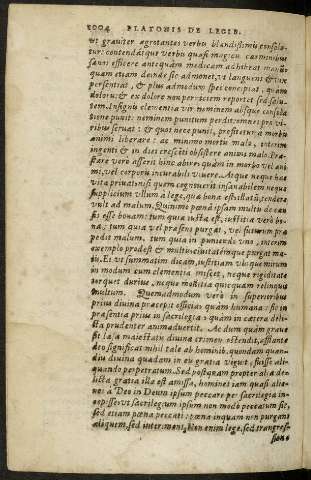 1004 PLATONIS DE LEGIB.
ut graviter ægrotantes verbis blandissimis consola-
tur: contendatque verbis quasi magicis carminibus
sanū efficere antequàm medicam adhibeat manū:
quam etiam deinde sic admovet, ut languenti & vix
persentiat, & plus admodum spei concipiat, quàm
doloris: & ex dolore non perniciem reportet sed salu-
tem. Insignis clementia vir neminem absque consola
tione punit: neminem punitum perdit: omnes pro vi-
ribus servat: & quos nece punit, profitetur, à morbis
animi liberare: ac minimo mortis malo, interim
ingenti & in dies crescenti obsistere animi malo. Præ-
stare verò asserit hinc abire, quàm in morbo vel ani-
mi, vel corporis incurabili vivere. Atque neque hac
vita privat, nisi quem cognoverit insanabilem: neque
supplicium ullum à lege, quæ bona est, illatū, tendere
vult ad malum. Quinimo pœnā ipsam multis de cau-
sis esse bonam: tum quia iusta est, iustitia verò bo-
na; tum quia vel præsens purgat, vel futurum præ-
pedit malum, tum quia in puniendo uno, interim
exemplo prodest & multis: civitatémque purgat ma-
lis. Et ut summatim dicam, iustitiam ubique mirum
in modum cum clementia miscet, neque rigiditate
torquet durius, neque mollitia quicquam relinquit
inultum. Quemadmodum verò in superioribus
prius divina præcepit officia: quàm humana: sic in
præsentia prius in sacrilegia: quàm in cætera deli-
cta prudenter animadvertit. Ac dum quàm grave
sit læsa maiestatis divina crimen ostendit, affirmat
deo significat nihil tale ab hominib. quondam quam-
diu divina quædam in eis gratia viguit, fuisse ali-
quando perpetratum. Sed postquam propter alia de-
licta gratia illa est amissa, homines iam quasi alie-
nos à Deo in Deum ipsum peccare per sacrilegia in-
cepisse: ut sacrilegium ipsum non modo peccatum sit,
sed etiam pœna peccati: pœna inquam non purgans
aliquem, sed interimens. Non enim lege, sed transgres-
sione